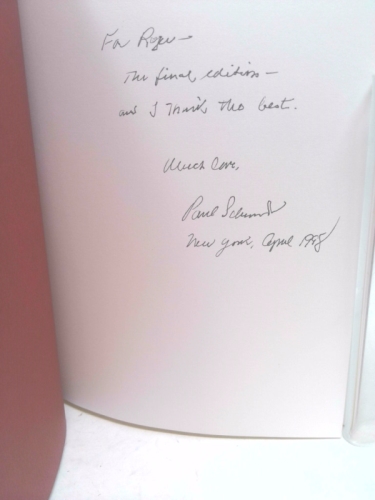 For Roger —
The final edition —
and I think the best.
Much love,
Paul Schmidt
New York, April 1998